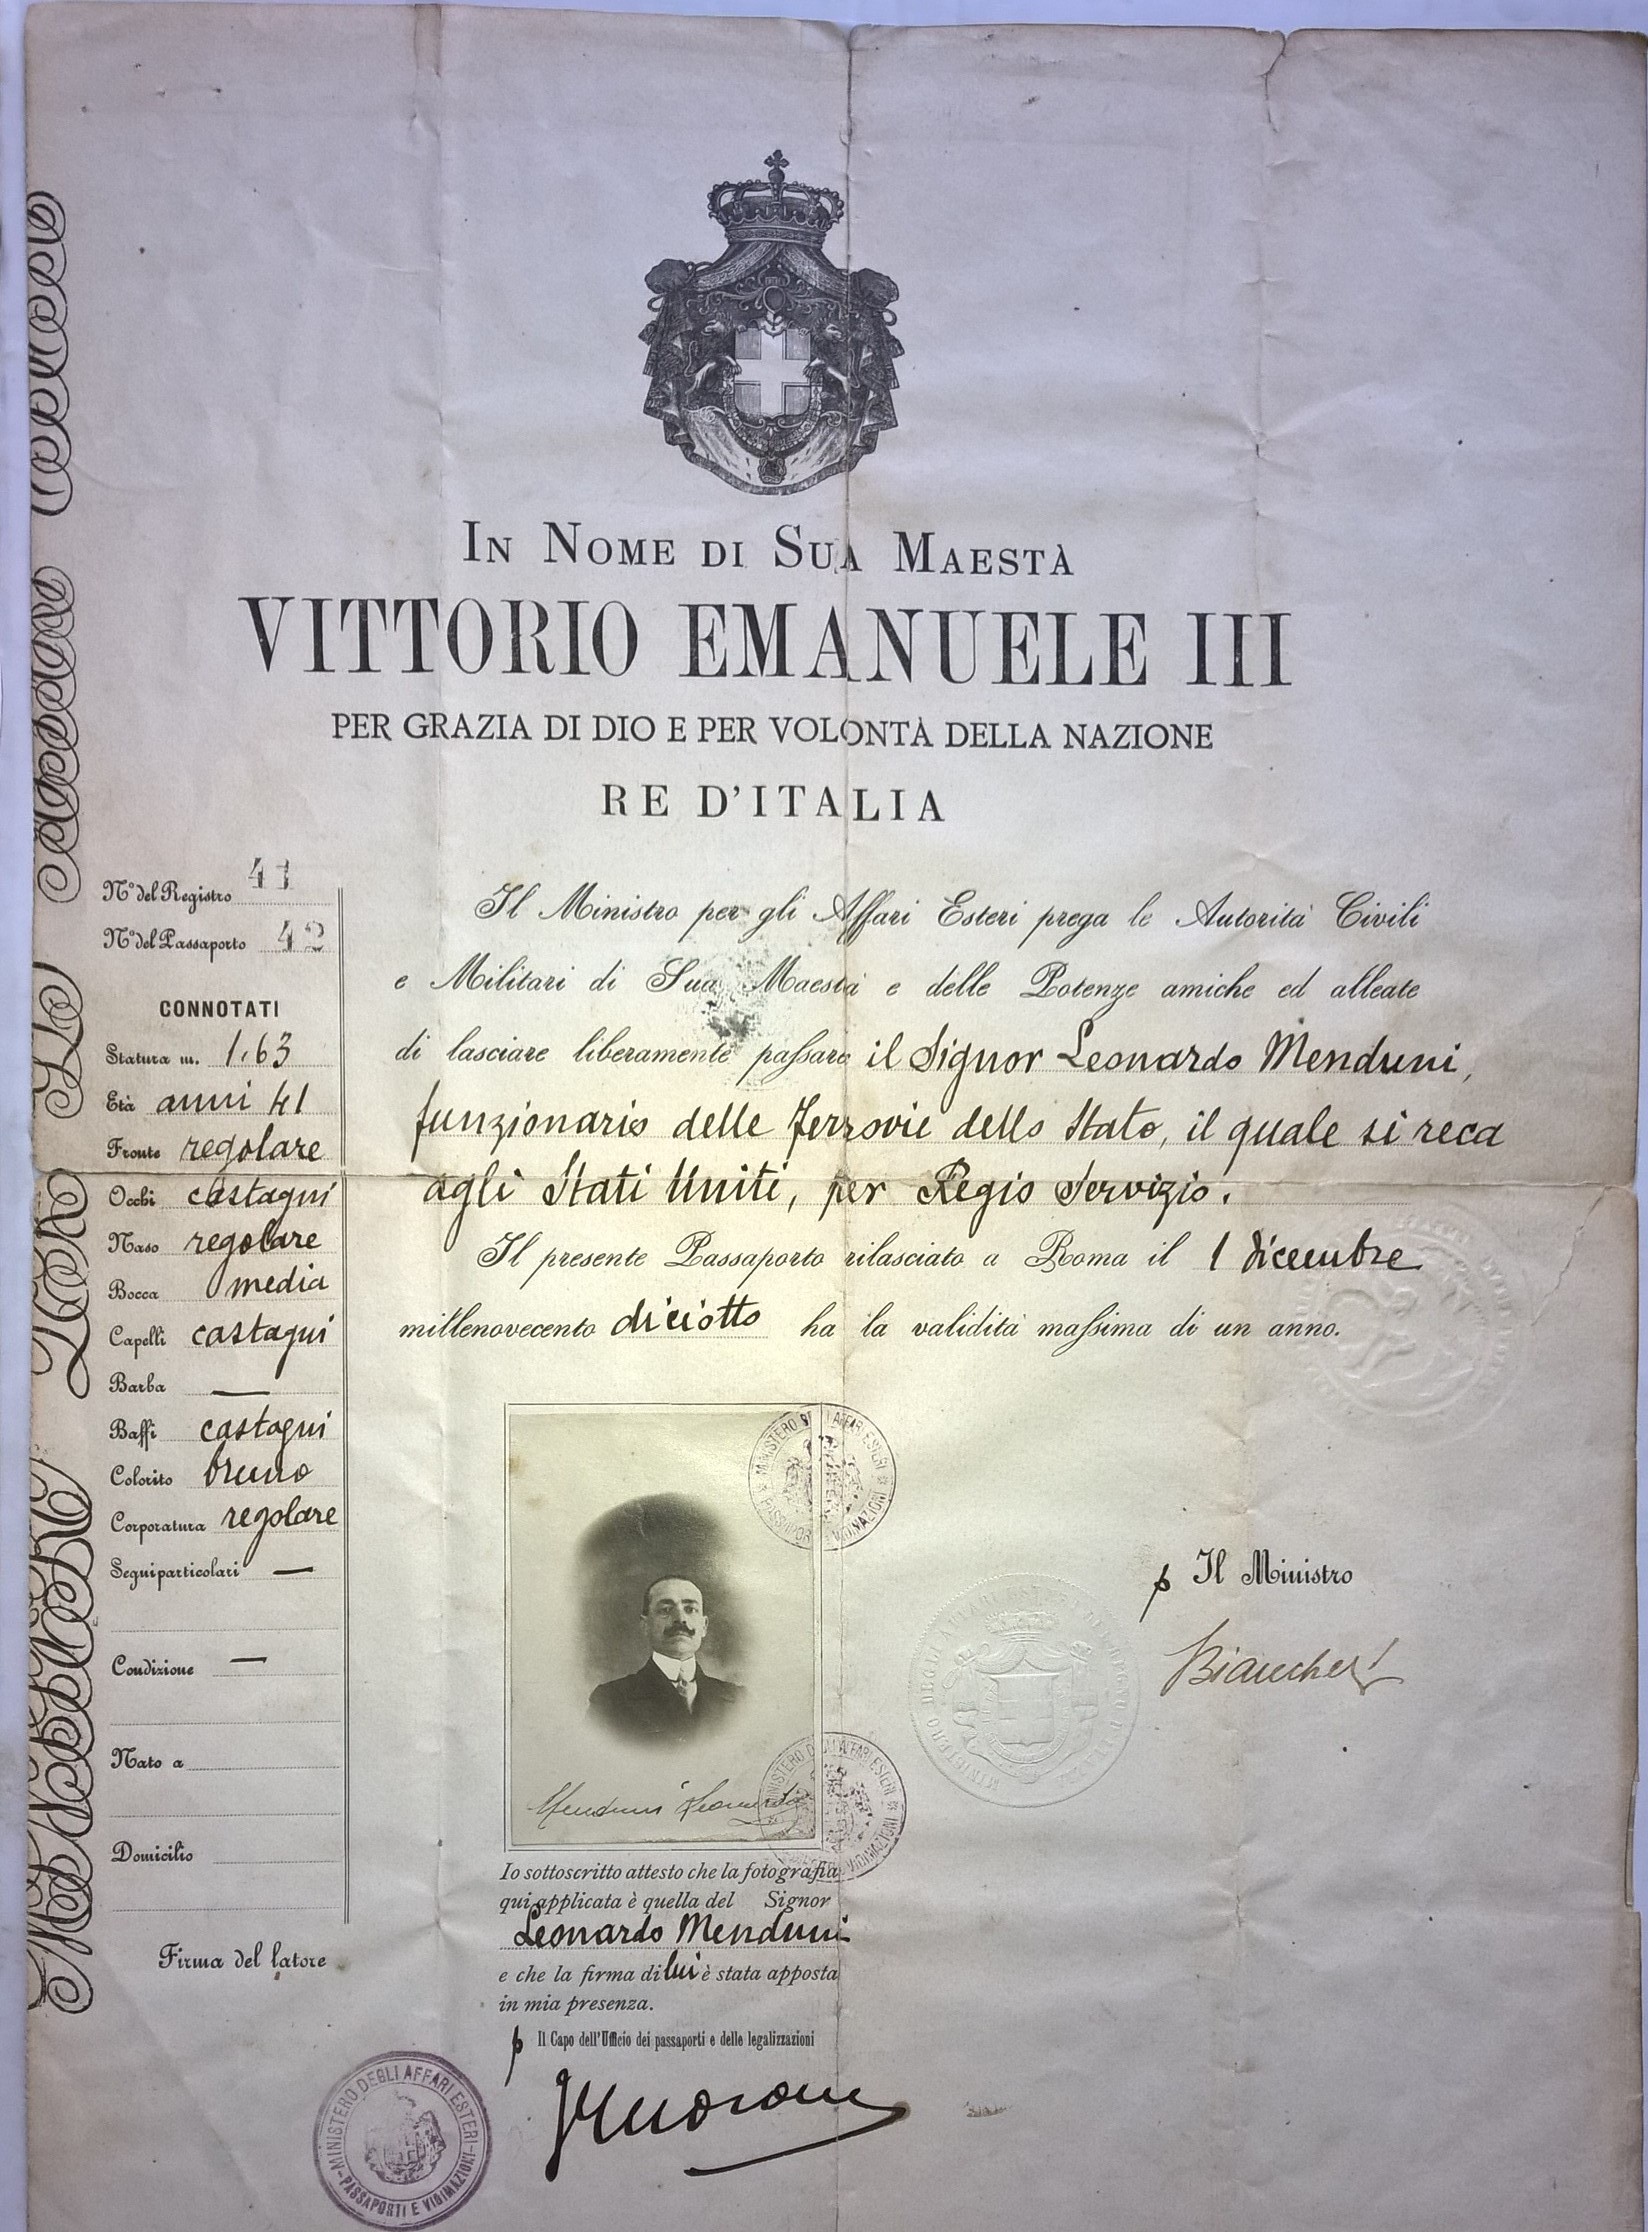 In Nome di Sua Maestà
VITTORIO EMANUELE III
PER GRAZIA DI DIO E PER VOLONTÀ DELLA NAZIONE
RE D'ITALIA
N° del Registro 41
N° del Passaporto 42
CONNOTATI
Statura m. 1.63
Età anni 41
Fronte regolare
Occhi castagni
Naso regolare
Bocca media
Capelli castagni
Barba —
Baffi castagni
Colorito bruno
Corporatura regolare
Segni particolari —
Condizione —
Nato a
Domicilio
Firma del latore
Il Ministro per gli Affari Esteri prega le Autorità Civili
e Militari di Sua Maestà e delle Potenze amiche ed alleate
di lasciare liberamente passare il Signor Leonardo Menduni,
funzionario delle Ferrovie dello Stato, il quale si reca
agli Stati Uniti, per Regio Servizio.
Il presente Passaporto rilasciato a Roma il 1 dicembre
millenovecento diciotto ha la validità massima di un anno.
MINISTERO DEGLI AFFARI ESTERI
PASSAPORTI E VIDIMAZIONI
p Il Ministro
Menduni Leonardo
MINISTERO DEGLI AFFARI ESTERI
VIDIMAZIONI
Io sottoscritto attesto che la fotografia
qui applicata è quella del Signor
Leonardo Menduni
e che la firma di lui è stata apposta
in mia presenza.
p Il Capo dell'Ufficio dei passaporti e delle legalizzazioni
MINISTERO DEGLI AFFARI ESTERI
PASSAPORTI E VIDIMAZIONI